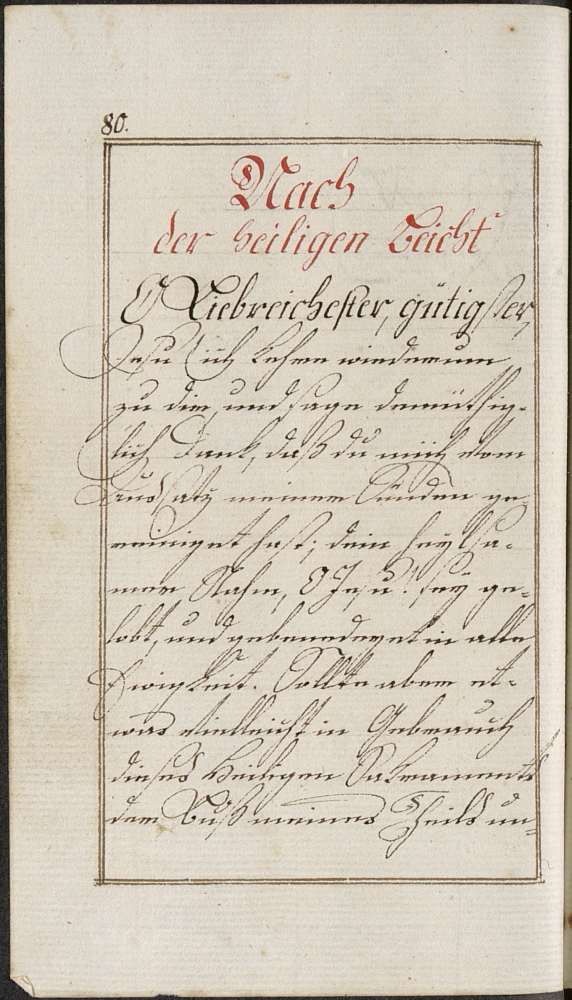 80.
Nach
der heiligen Beicht
O Liebreichester, gütigster,
Jesu! ich kehre wiederum
zu dir, und sage demüthig-
lich Dank, daß du mich vom
Aussatz meiner Sünden ge-
reiniget hast; dein heylsa-
mer Nahm, O Jesu! sey ge-
lobt, und gebenedeyet in alle
Ewigkeit. Sollte aber et-
was vielleicht in Gebrauch
dieses Heiligen Sakraments
der Buß meines Theils un-